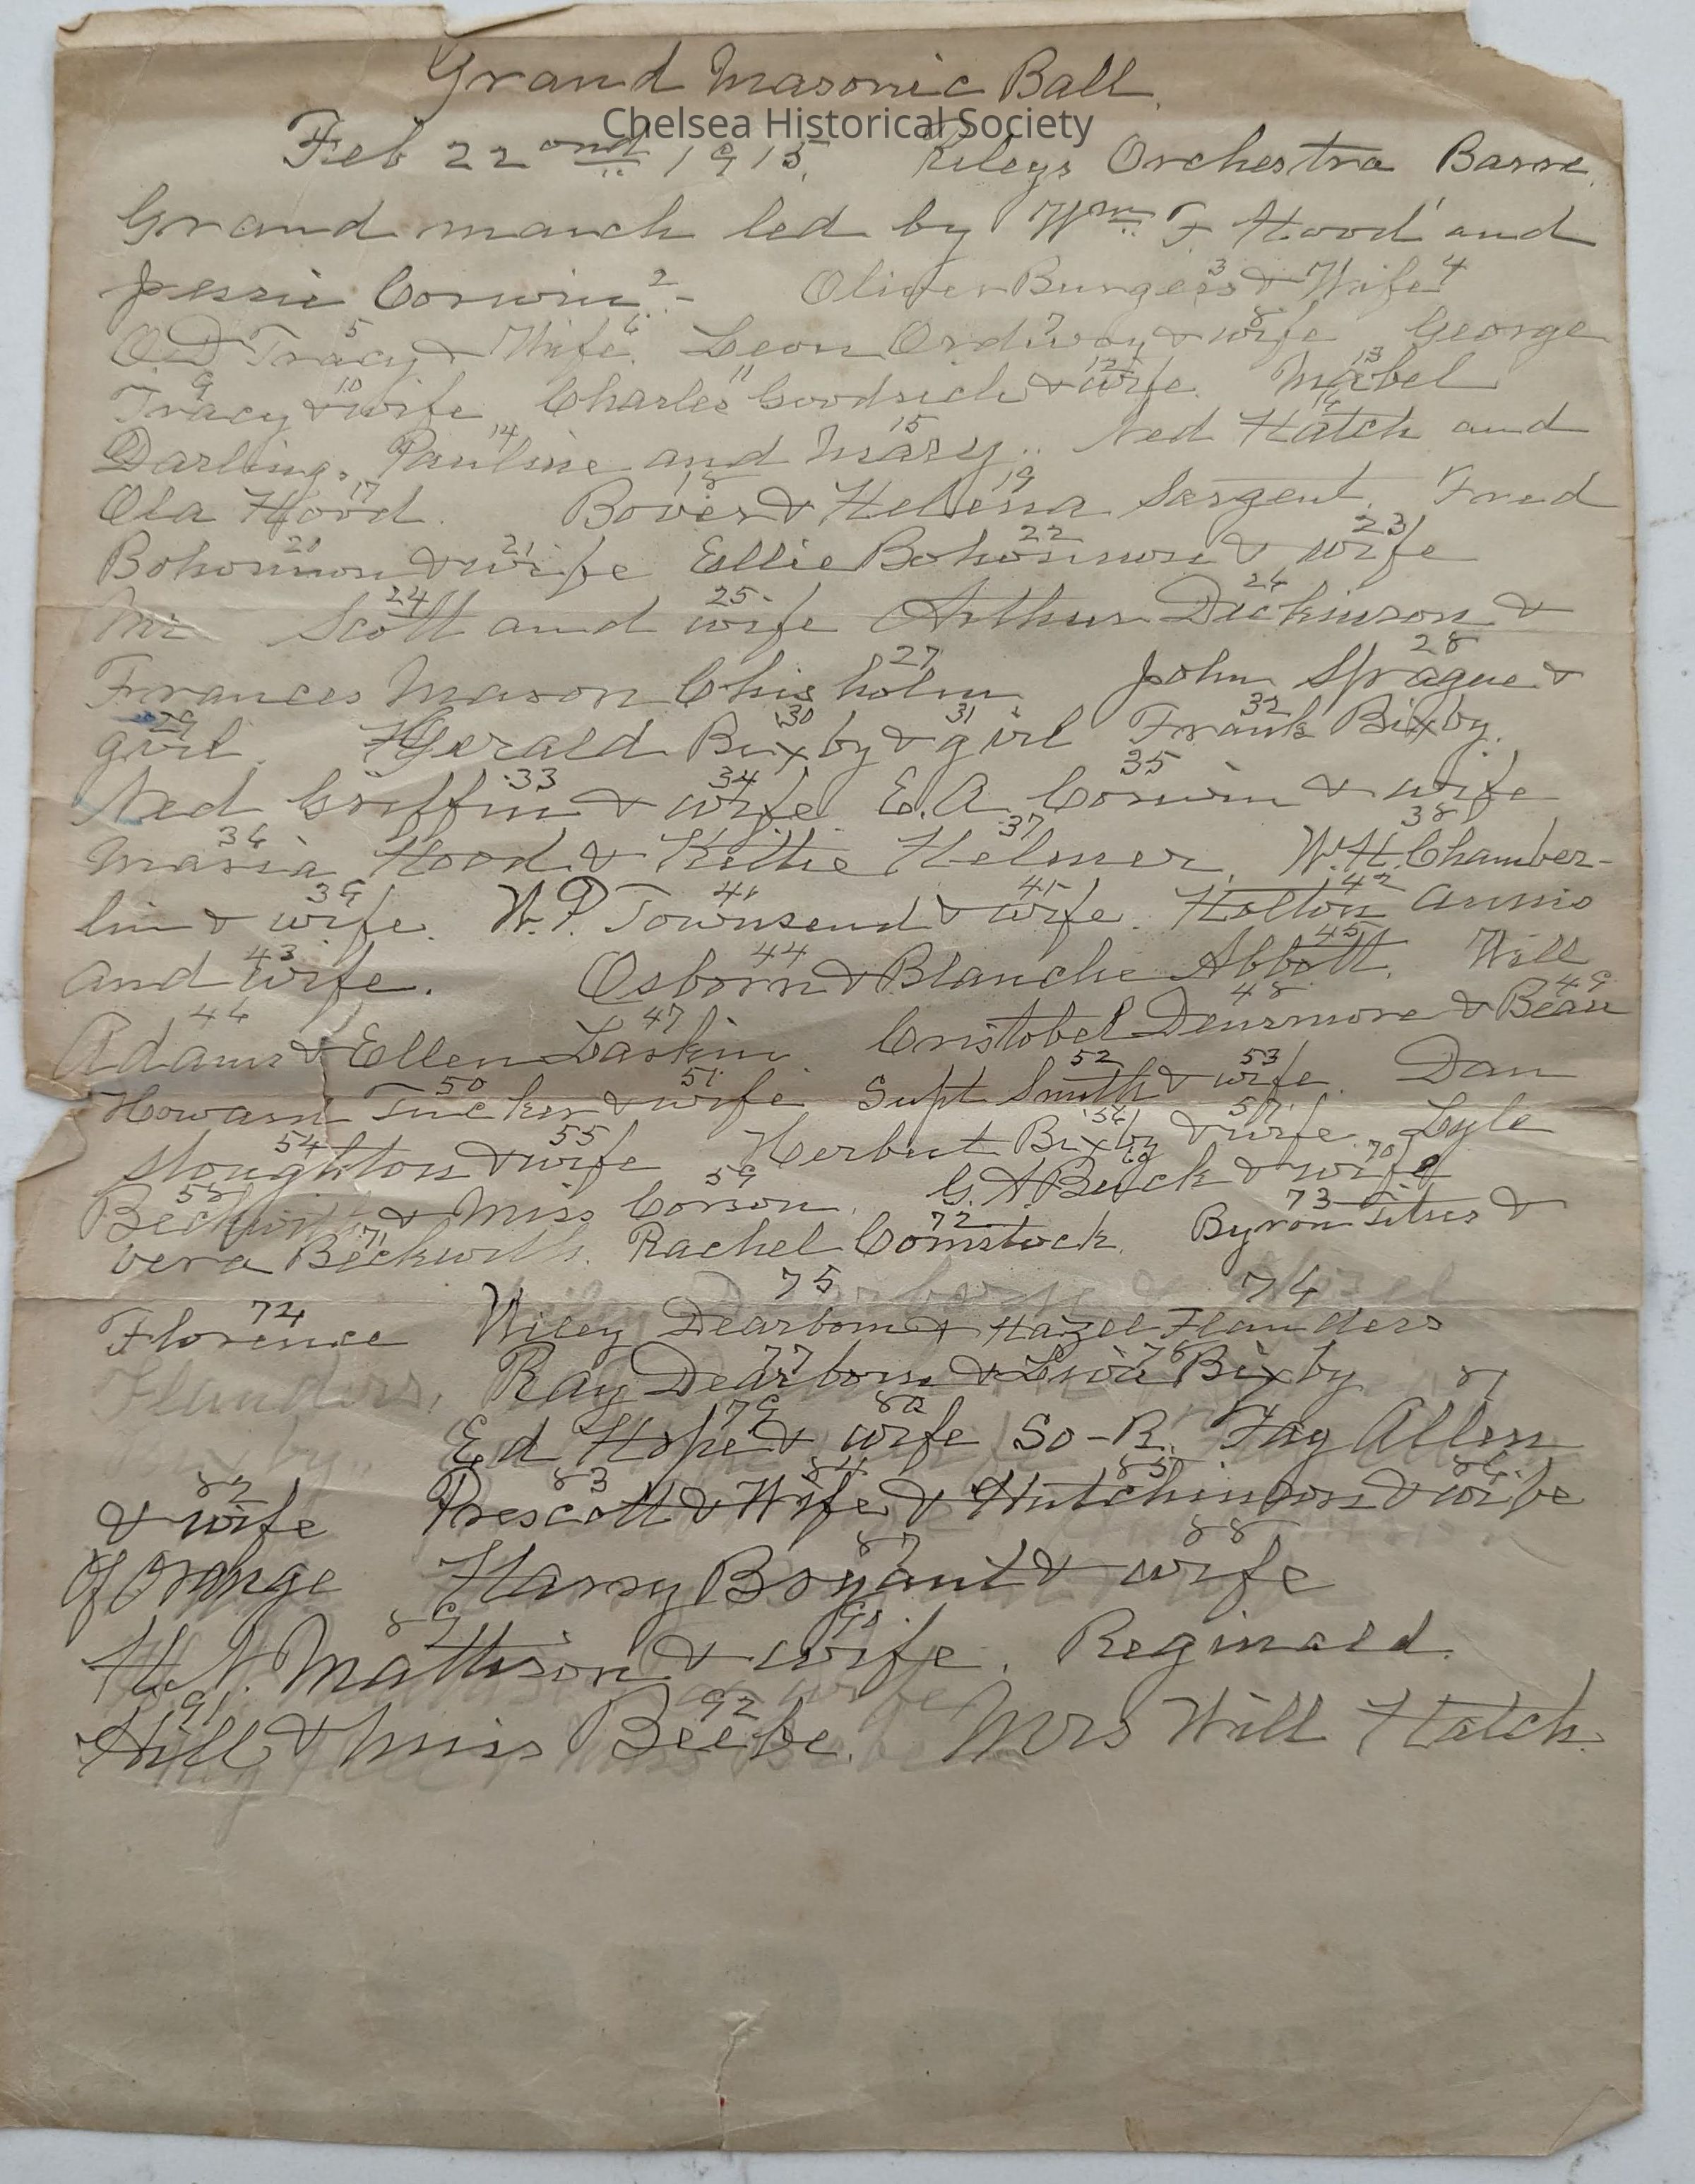 Grand Masonic Ball.
Chelsea Historical Society
Feb 22 ond 1915. Rileys Orchestra Barre.
Grand march led by Wm. F. Hood and
Jessie Corwin 2 - Oliver Burgess 3 & Wife 4
O.D Tracy 5 & Wife 6. Leon Ordway 7 & wife 8 George
Tracy 9 & wife 10 Charles Goodrich 11 & wife 12. Mabel 13
Darling. Pauline 14 and Mary 15.. Ned Hatch 16 and
Ola Hood 17. Bover 18 & Helena 19 Sargent. Fred
Bohonnon 20 & wife 21 Ellie Bohonnon 22 & wife 23
Mr Scott 24 and wife 25 Arthur Dickinson 26 &
Frances Mason Chisholm 27 John Sprague 28 &
girl 29. Gerald Bixby 30 & girl 31 Frank Bixby 32.
Ned Griffin 33 & wife 34 E.A. Corwin 35 & wife
Maria 36 Hood & Kittie Helmer 37. W.H. Chamber- 38
lin & wife 39. W.P. Townsend 41 & wife 41. Holton 42 Annis
and wife 43. Osborn 44 & Blanche Abbott 45. Will
Adams 46 & Ellen Laskin 47. Cristobel Densmore 48 & Bean 49
Howard Tucker 50 & wife 51 Supt Smith 52 & wife 53. Dan
Stoughton 54 & wife 55 Herbert Bixby 56 & wife 57. Lyle
Beckwith 58 & Miss Corson 59. G. A Buck 60 & wife 70
Vera Beckwith 71. Rachel Comstock 72. Byron Titus 73 &
Florence 74 Wiley Dearborn 75 & Hazel Flanders 76
Flanders, Ray Dearborn 77 & Bixby 78
Ed Hope 79 & wife 80 So-R. Fay Allen 81
& wife 82 Prescott 83 & Wife 84 & Hutchinson 85 & wife 86
of Orange Harry Bryant 87 & wife 88
H.N. Mattison 89 & wife 90. Reginald
Hill 91 & Miss Beebe 92. Mrs Will Hatch.